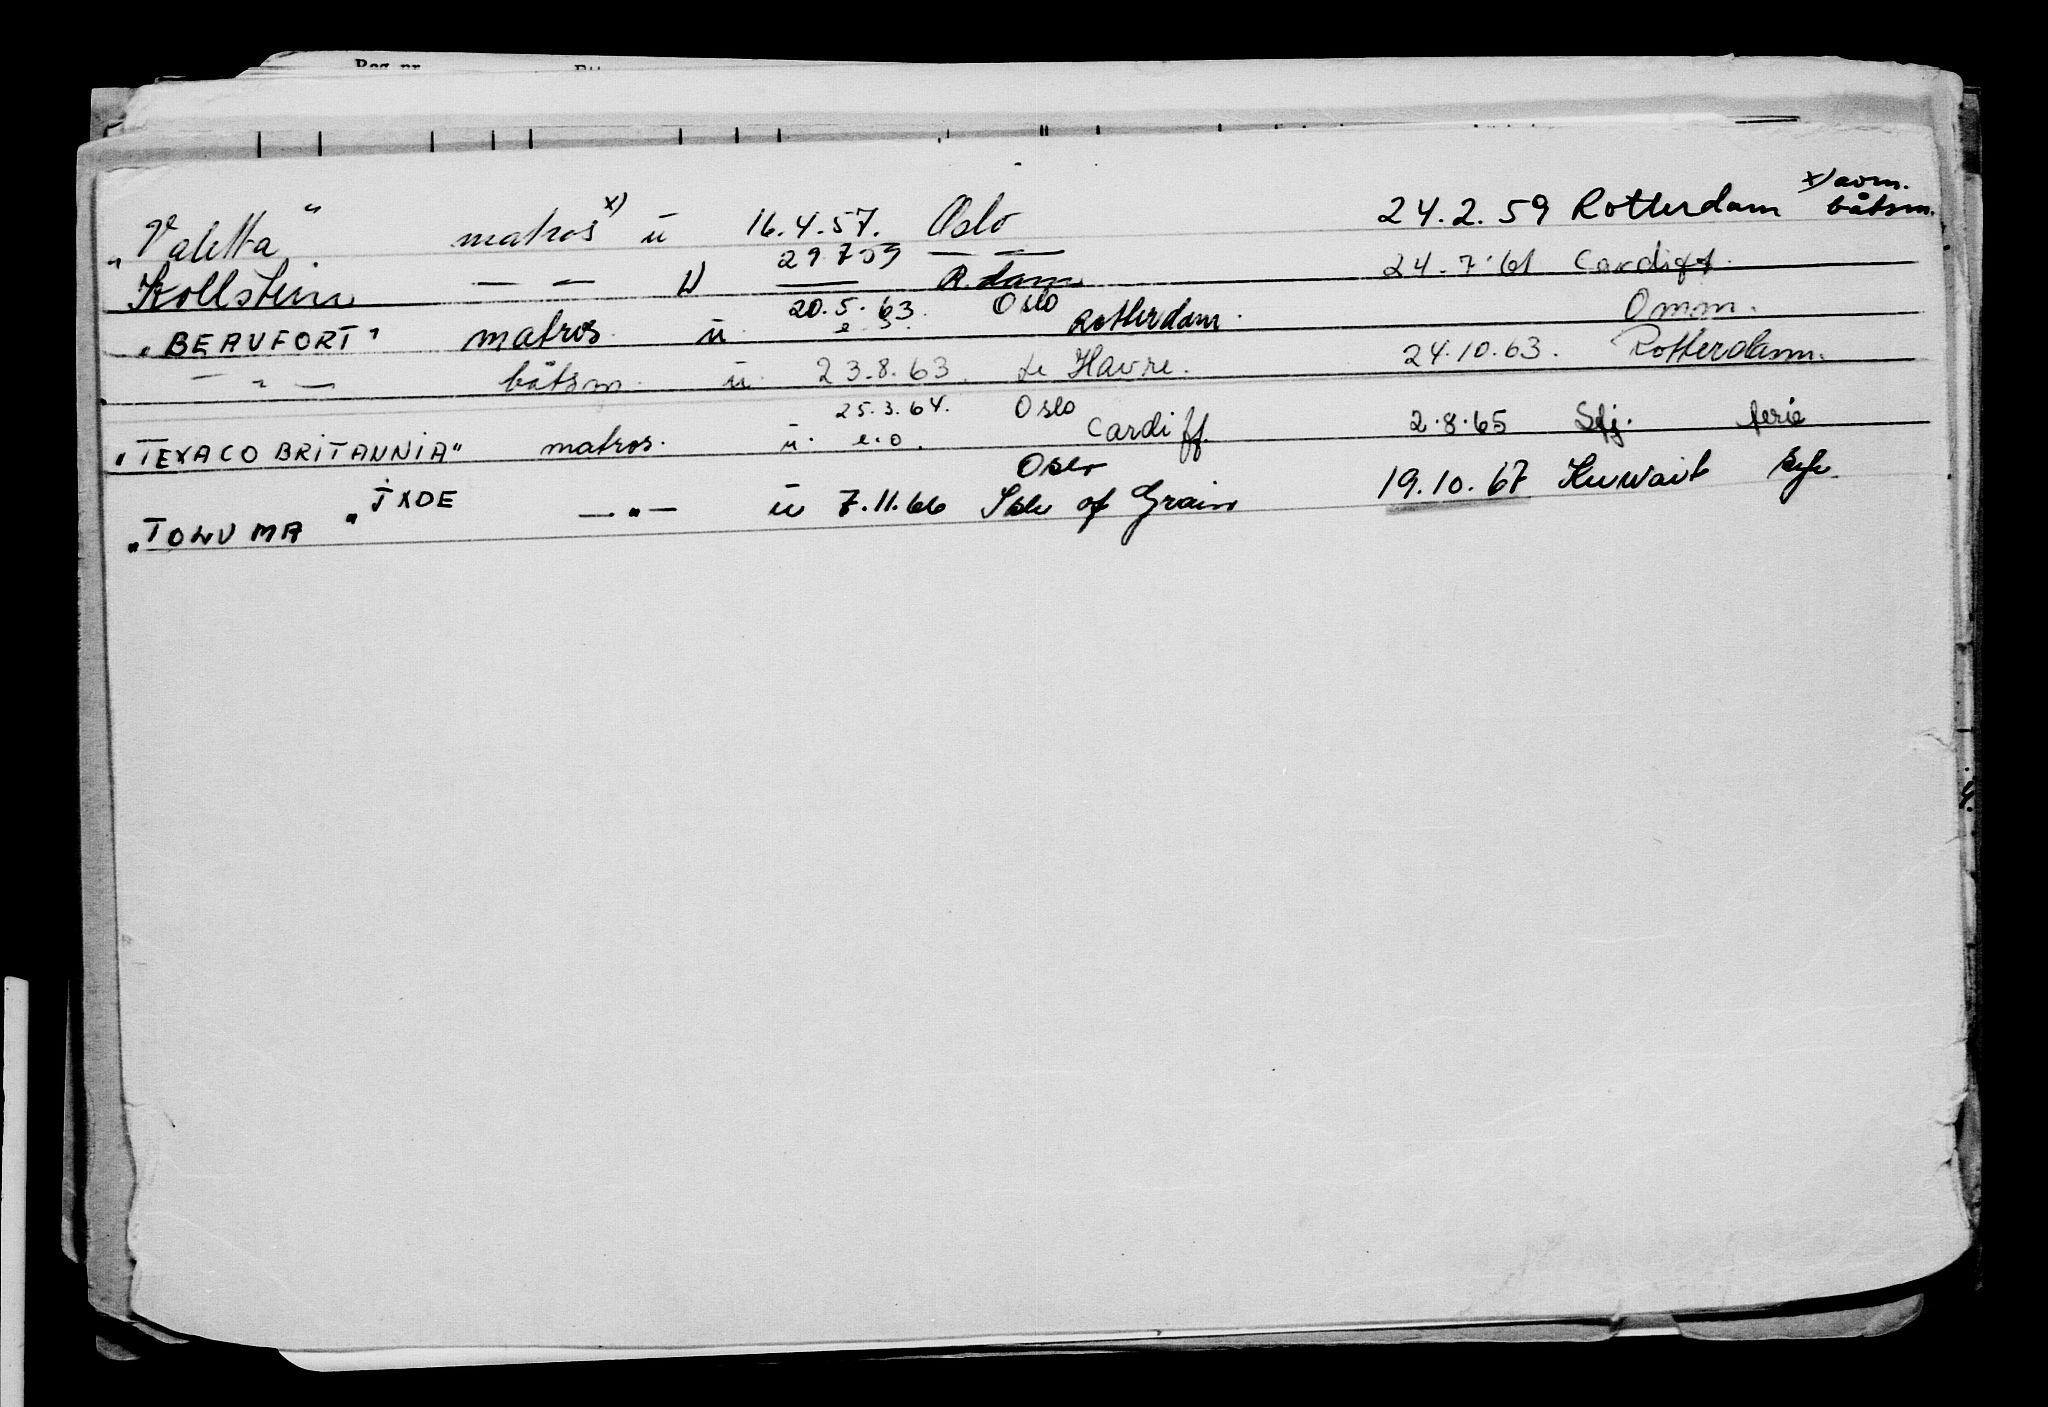 "Valetta" matros x) u 16.4.57. Oslo 24.2.59 Rotterdam x) avm. båtsm.
Kollstein — — u 29 7 59 — — R.dam 24.7.61 Cardiff.
"BEAUFORT" matros u. 20.5.63. Oslo Rotterdam. Omm.
— " — båtsm. u. 23.8.63. Le Havre. 24.10.63. Rotterdam.
"TEXACO BRITANNIA" matros. u. 25.3.64. e.o. Oslo Cardiff. 2.8.65 Sfj. ferie
"TOLUMA" TXDE — " — u 7.11.66 Oslo Isle of Grain 19.10.67 Kuwait syk.